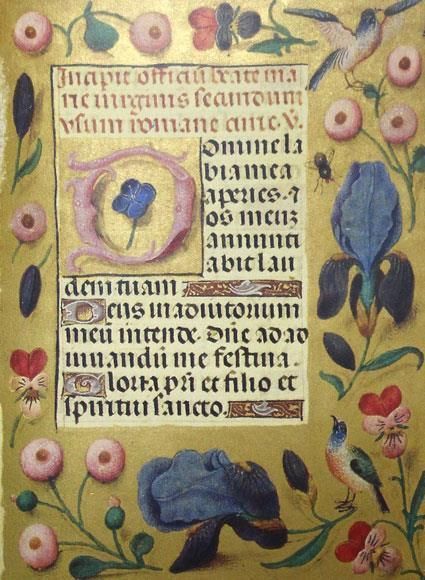 Incipit officiū beate ma
rie uirginis secundum
usum romane curie. V̄
Domine la
bia mea
aperies. ⁊
os meuz
annunti
abit lau
dem tuam
Deus in adiutorium
meū intende. Dn̄e ad ad
iuuandū me festina.
Gloria pr̄i et filio et
spiritui sancto.